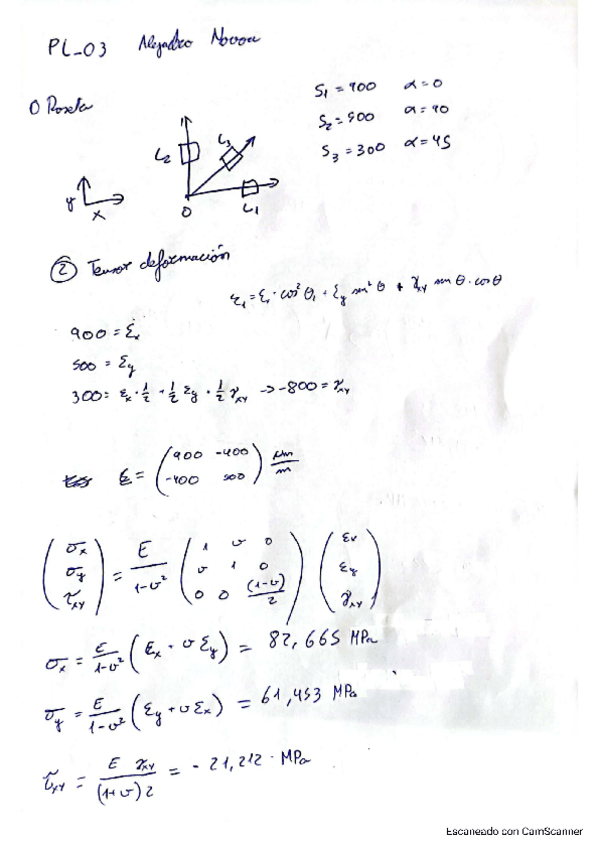 PL_03 Alejandro Novoa
S₁ = 900 α = 0
① Roseta
S₂ = 500 α = 90
S₃ = 300 α = 45
L₂ L₃
y x
0 L₁
② Tensor deformación
ε₁ = εₓ · cos² θ₁ + ε_y sin² θ + γ_xy sin θ · cos θ
900 = εₓ
500 = ε_y
300 = εₓ · 1/2 + 1/2 ε_y · 1/2 γ_xy → -800 = γ_xy
ε = ( 900 -400
-400 500 ) μm/m
( σₓ σ_y τ_xy ) = E/(1-υ²) ( 1 υ 0
υ 1 0
0 0 (1-υ)/2 ) ( εₓ ε_y γ_xy )
σₓ = E/(1-υ²) (εₓ + υ ε_y) = 82,665 MPa
σ_y = E/(1-υ²) (ε_y + υ εₓ) = 61,453 MPa
τ_xy = E γ_xy / (1+υ)2 = -21,212 · MPa
Escaneado con CamScanner